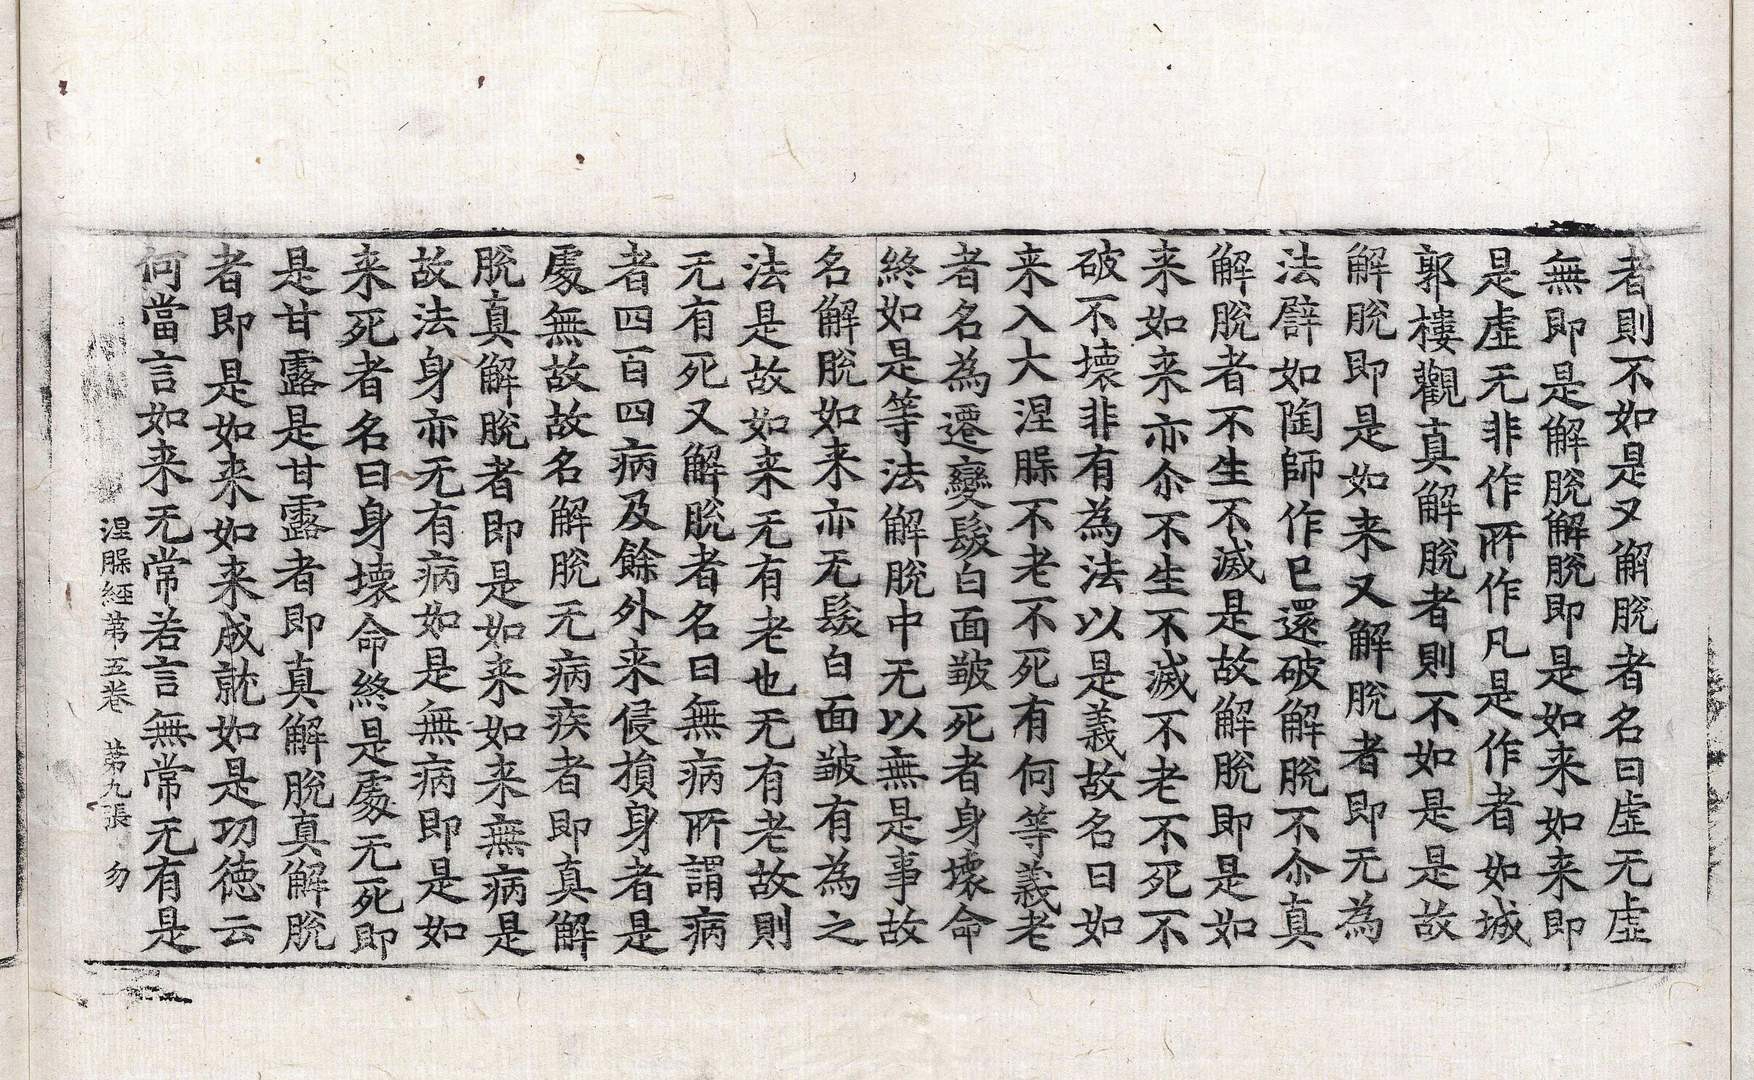 者則不如是又解脫者名曰虛无虛
無即是解脫解脫即是如来如来即
是虛无非作所作凡是作者如城
郭樓觀真解脫者則不如是是故
解脫即是如来又解脫者即无為
法譬如陶師作已還破解脫不尒真
解脫者不生不滅是故解脫即是如
来如来亦尒不生不滅不老不死不
破不壞非有為法以是義故名曰如
来入大涅槃不老不死有何等義老
者名為遷變髮白面皺死者身壞命
終如是等法解脫中无以無是事故
名解脫如来亦无髮白面皺有為之
法是故如来无有老也无有老故則
无有死又解脫者名曰無病所謂病
者四百四病及餘外来侵損身者是
處無故故名解脫无病疾者即真解
脫真解脫者即是如来如来無病是
故法身亦无有病如是無病即是如
来死者名曰身壞命終是處无死即
是甘露是甘露者即真解脫真解脫
者即是如来如来成就如是功德云
何當言如来无常若言無常无有是
涅槃經第五卷 第九張 勿